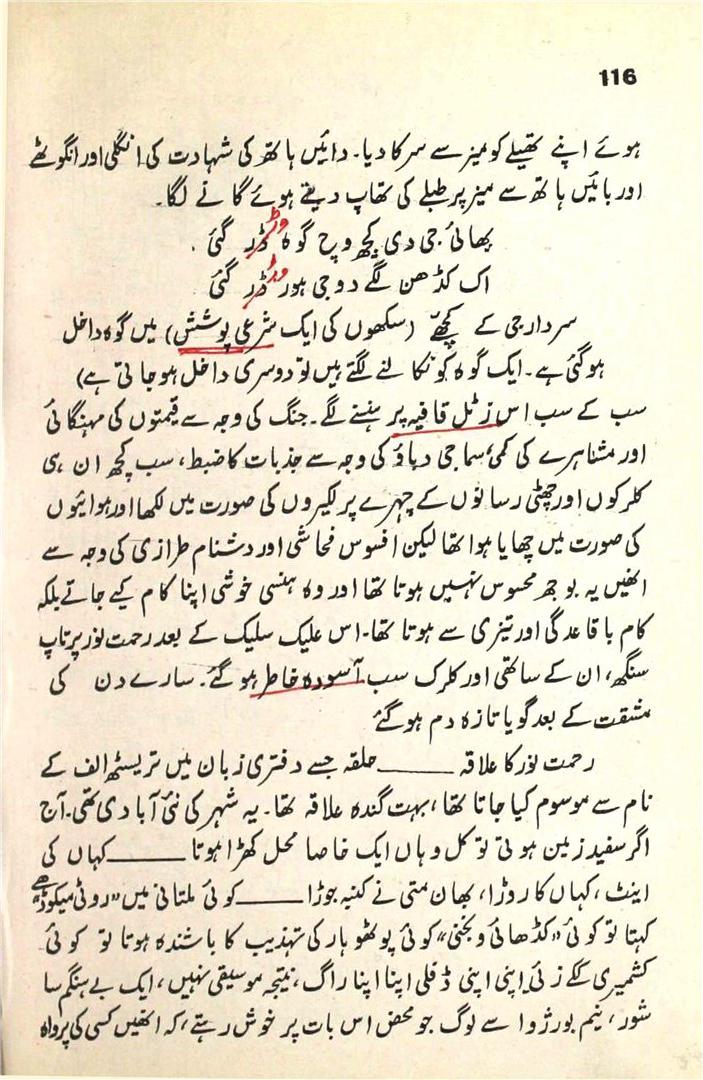 116
ہوئے اپنے تھیلے کو میز سے سرکا دیا۔ دائیں ہاتھ کی شہادت کی انگلی اور انگوٹھے
اور بائیں ہاتھ سے میز پر طبلے کی تھاپ دیتے ہوئے گانے لگا۔
بھائی جی دی کچھ وچ گوہ وڑ گئی
اک کڈھن لگے دوجی ہور وڑ گئی
سردار جی کے کچھّے (سکھوں کی ایک شرعی پوشش) میں گوہ داخل
ہو گئی ہے۔ ایک گوہ کو نکالنے لگتے ہیں تو دوسری داخل ہو جاتی ہے)
سب کے سب اس زٹل قافیہ پر ہنسنے لگے۔ جنگ کی وجہ سے قیمتوں کی مہنگائی
اور مشاہرے کی کمی، سماجی دباؤ کی وجہ سے جذبات کا ضبط، سب کچھ ان ہی
کلرکوں اور چھٹی رسانوں کے چہرے پر لکیروں کی صورت میں لکھا اور ہوائیوں
کی صورت میں چھایا ہوا تھا لیکن افسوس فحاشی اور دشنام طرازی کی وجہ سے
انھیں یہ بوجھ محسوس نہیں ہوتا تھا اور وہ ہنسی خوشی اپنا کام کیے جاتے بلکہ
کام باقاعدگی اور تیزی سے ہوتا تھا۔ اس علیک سلیک کے بعد رحمت نور پرتاپ
سنگھ، ان کے ساتھی اور کلرک سب آسودہ خاطر ہو گئے۔ سارے دن کی
مشقت کے بعد گویا تازہ دم ہو گئے
رحمت نور کا علاقہ ـــــــ حلقہ جسے دفتری زبان میں تریسٹھ الف کے
نام سے موسوم کیا جاتا تھا، بہت گندہ علاقہ تھا۔ یہ شہر کی نئی آبادی تھی۔ آج
اگر سفید زمین ہوتی تو کل وہاں ایک خاصا محل کھڑا ہوتا ـــــــ کہاں کی
اینٹ، کہاں کا روڑا، بھان متی نے کنبہ جوڑا ـــــــ کوئی ملتانی میں "روٹی میکوڈے"
کہتا تو کوئی "کڈھائی وبخنی" کوئی پوٹھوہار کی تہذیب کا باشندہ ہوتا تو کوئی
کشمیری گلے زئی اپنی اپنی ڈفلی اپنا اپنا راگ، نتیجہ موسیقی نہیں، ایک بے ہنگم سا
شور، نیم بورژوا سے لوگ جو محض اس بات پر خوش رہتے، کہ انھیں کسی کی پرواہ